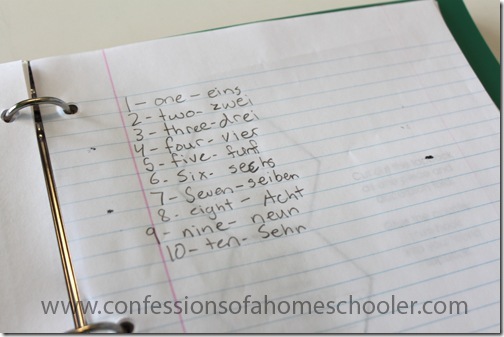 1- one - eins
2- two- zwei
3- three-drei
4- four- vier
5- five- funf
6- Six- sechs
7- Seven-seiben
8- eight - Acht
9- nine- neun
10- ten- Sehn
www.confessionsofahomeschooler.com